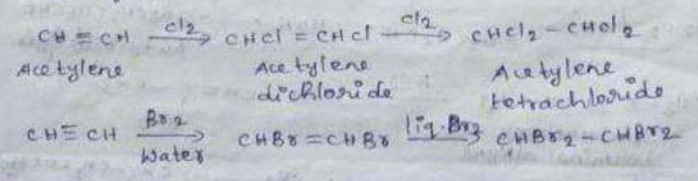 CH ≡ CH —Cl2→ CHCl = CHCl —Cl2→ CHCl2 – CHCl2
Acetylene Acetylene dichloride Acetylene tetrachloride
CH ≡ CH —Br2 Water→ CHBr = CHBr —liq. Br2→ CHBr2 – CHBr2